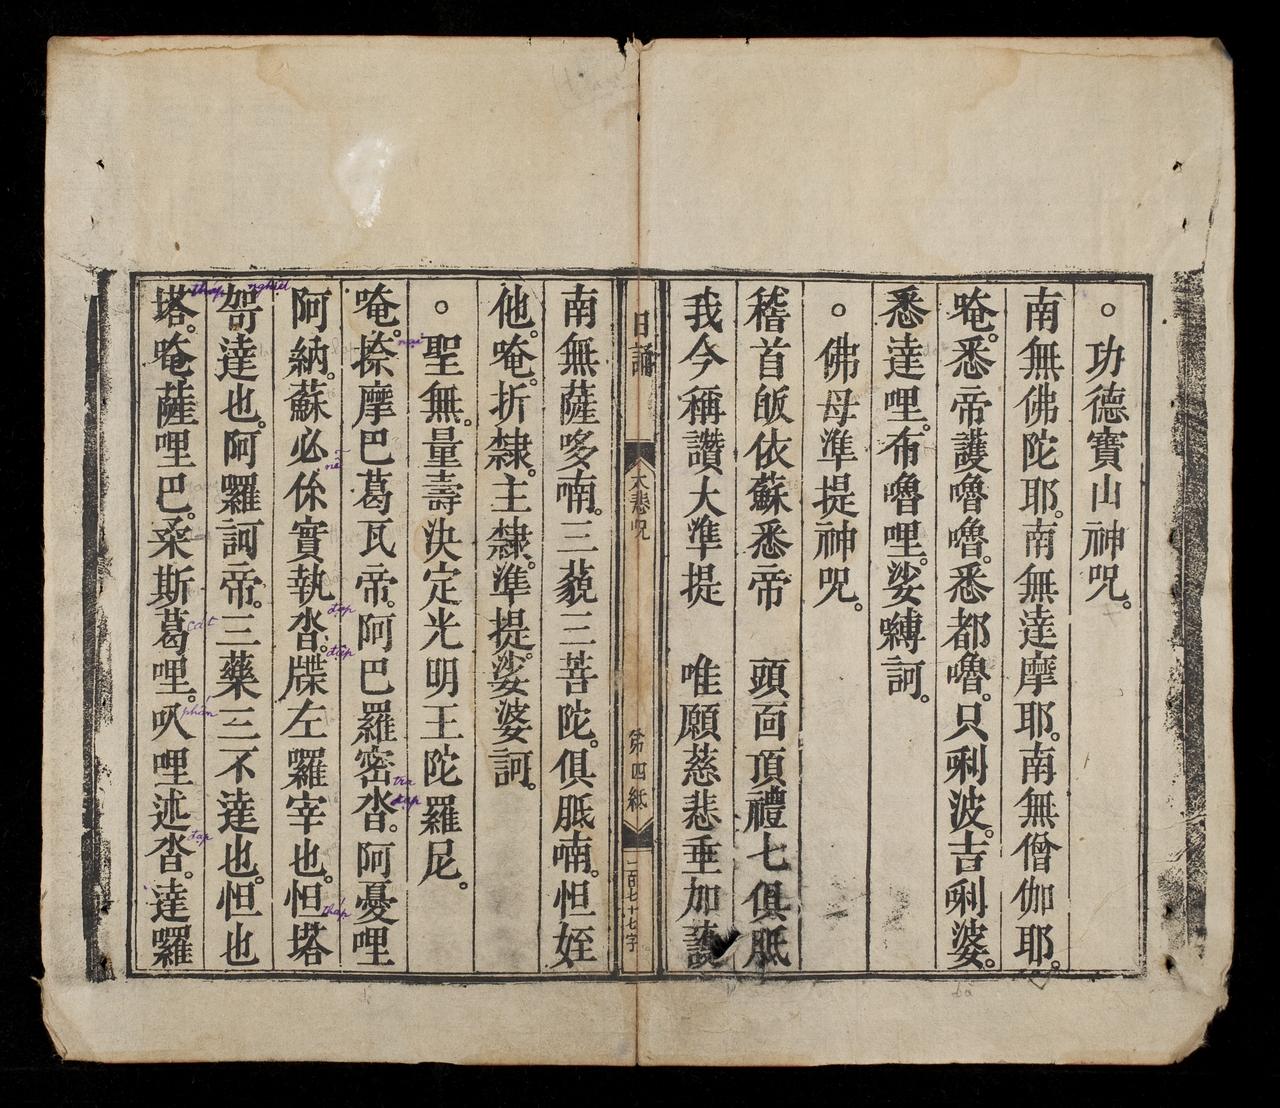 。功德寶山神咒。
南無佛陀耶。南無達摩耶。南無僧伽耶。
唵。悉帝護嚕嚕。悉都嚕。只唎波。吉唎婆。
悉達哩。布嚕哩。娑嚩訶。
。佛母準提神咒。
稽首皈依蘇悉帝 頭面頂禮七俱胝
我今稱讚大準提 唯願慈悲垂加護
日誦
大悲咒
第四紙
一百七十七字
南無薩哆喃。三藐三菩陀。俱胝喃。怛姪
他。唵。折隸。主隸。準提。娑婆訶。
。聖無量壽決定光明王陀羅尼。
唵。捺摩巴葛瓦帝。阿巴羅密沓。阿憂哩
阿納。蘇必你實執沓。牒左囉宰也。怛塔
哿達也。阿囉訶帝。三藥三不達也。怛也
塔。唵薩哩巴。桑斯葛哩。叭哩述沓。達囉
thap
nghiet
nai
nễ
đạp
đạp
cát
phấn
tra
đạp
đạp
tháp